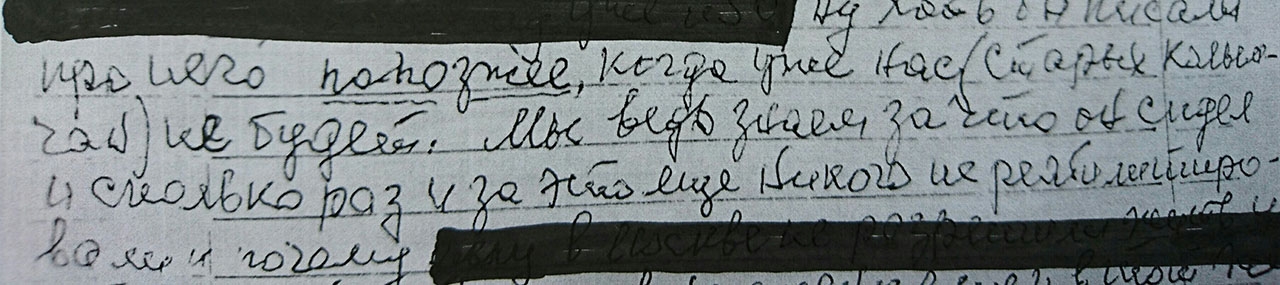 Ну хоть бы писали
про него попозже, когда уже нас (старых колым-
чан) не будет. Мы ведь знаем за что он сидел
и сколько раз и за это еще никого не реабилитиро-
вали и почему